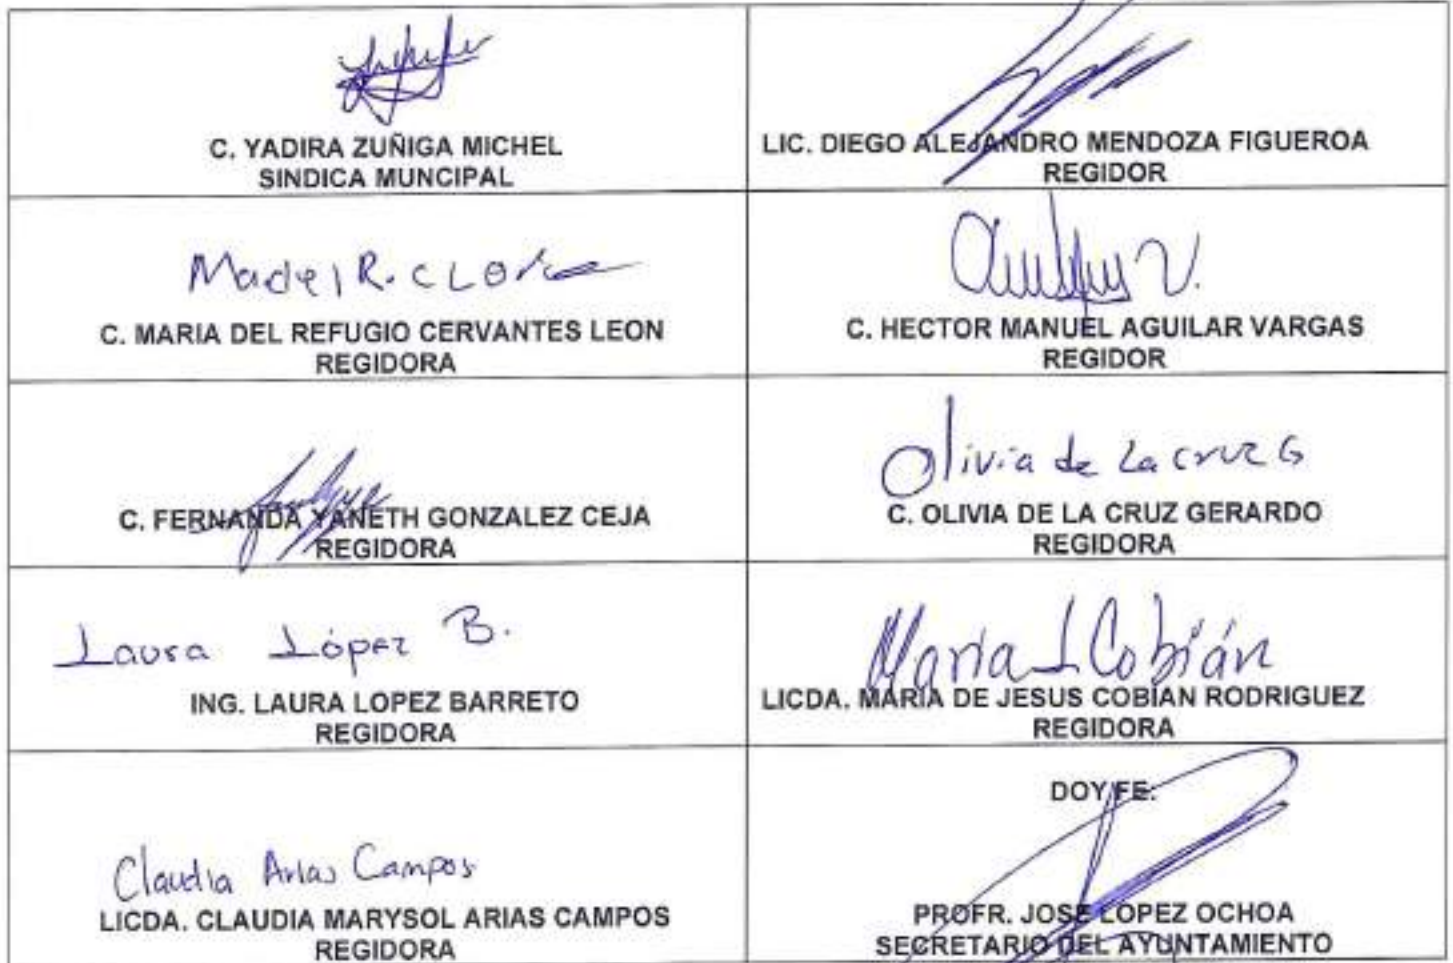 C. YADIRA ZUÑIGA MICHEL
SINDICA MUNCIPAL
LIC. DIEGO ALEJANDRO MENDOZA FIGUEROA
REGIDOR
C. MARIA DEL REFUGIO CERVANTES LEON
REGIDORA
C. HECTOR MANUEL AGUILAR VARGAS
REGIDOR
C. FERNANDA YANETH GONZALEZ CEJA
REGIDORA
Olivia de La cruz G
C. OLIVIA DE LA CRUZ GERARDO
REGIDORA
Laura López B.
ING. LAURA LOPEZ BARRETO
REGIDORA
Maria J Cobián
LICDA. MARIA DE JESUS COBIAN RODRIGUEZ
REGIDORA
Claudia Arias Campos
LICDA. CLAUDIA MARYSOL ARIAS CAMPOS
REGIDORA
DOY FE.
PROFR. JOSE LOPEZ OCHOA
SECRETARIO DEL AYUNTAMIENTO